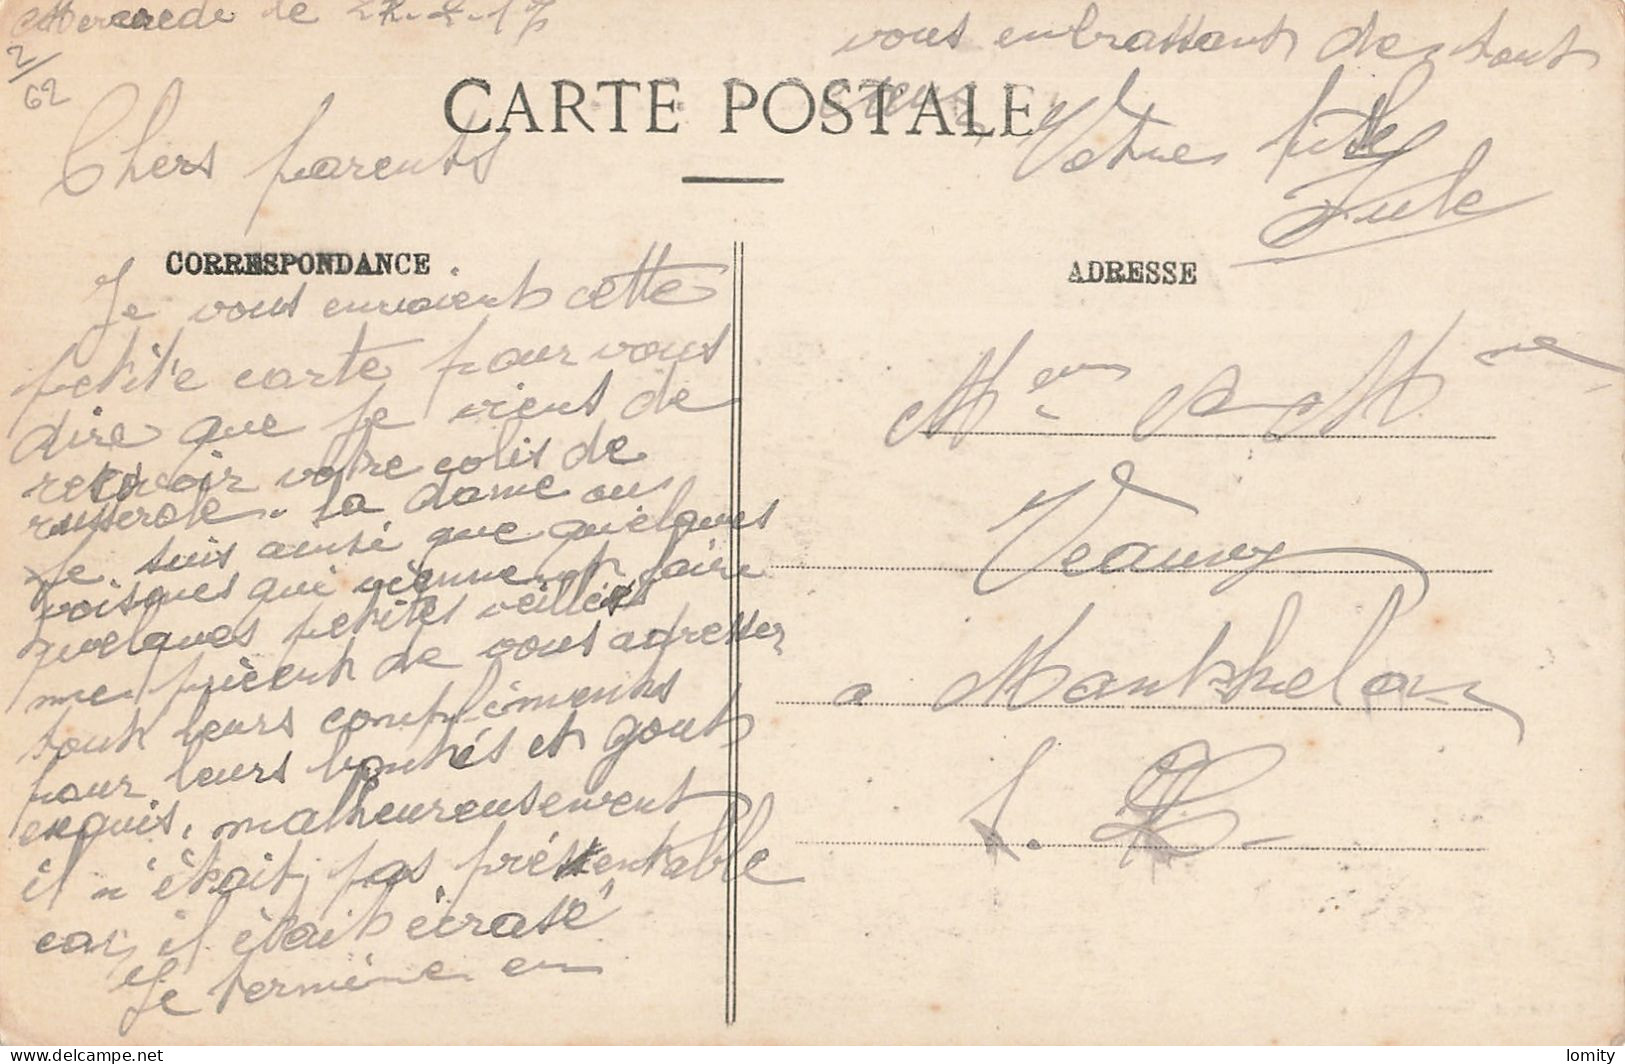 Mercredi le 21.2.17
2/62
CARTE POSTALE
Chers parents
CORRESPONDANCE
Je vous envoient cette
petite carte pour vous
dire que je viens de
recevoir votre colis de
russerole. la dame ou
je suis ainsi que quelques
voisques qui viennent faire
quelques petites veillés
me prient de vous adresser
tout leurs compliments
pour leurs bontés et gout
exquis, malheureusement
il n'était pas présentable
car il était écrasé
Je termine en
vous embrassant de tout
cœur Votre fils
Jule
ADRESSE
Meur & Mme
Veauvy
a Manthelan
I. L.
delcampe.net
lomity